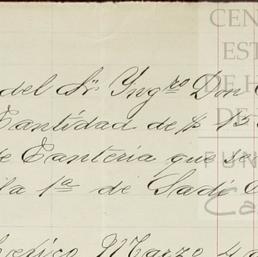 del Sr. Yngro Don
Cantidad de $ 13
de Canteria que se
la 1a de Sadi C
Mexico Marzo 4 d
CEN
EST
DE H
DE
FUN
Ca